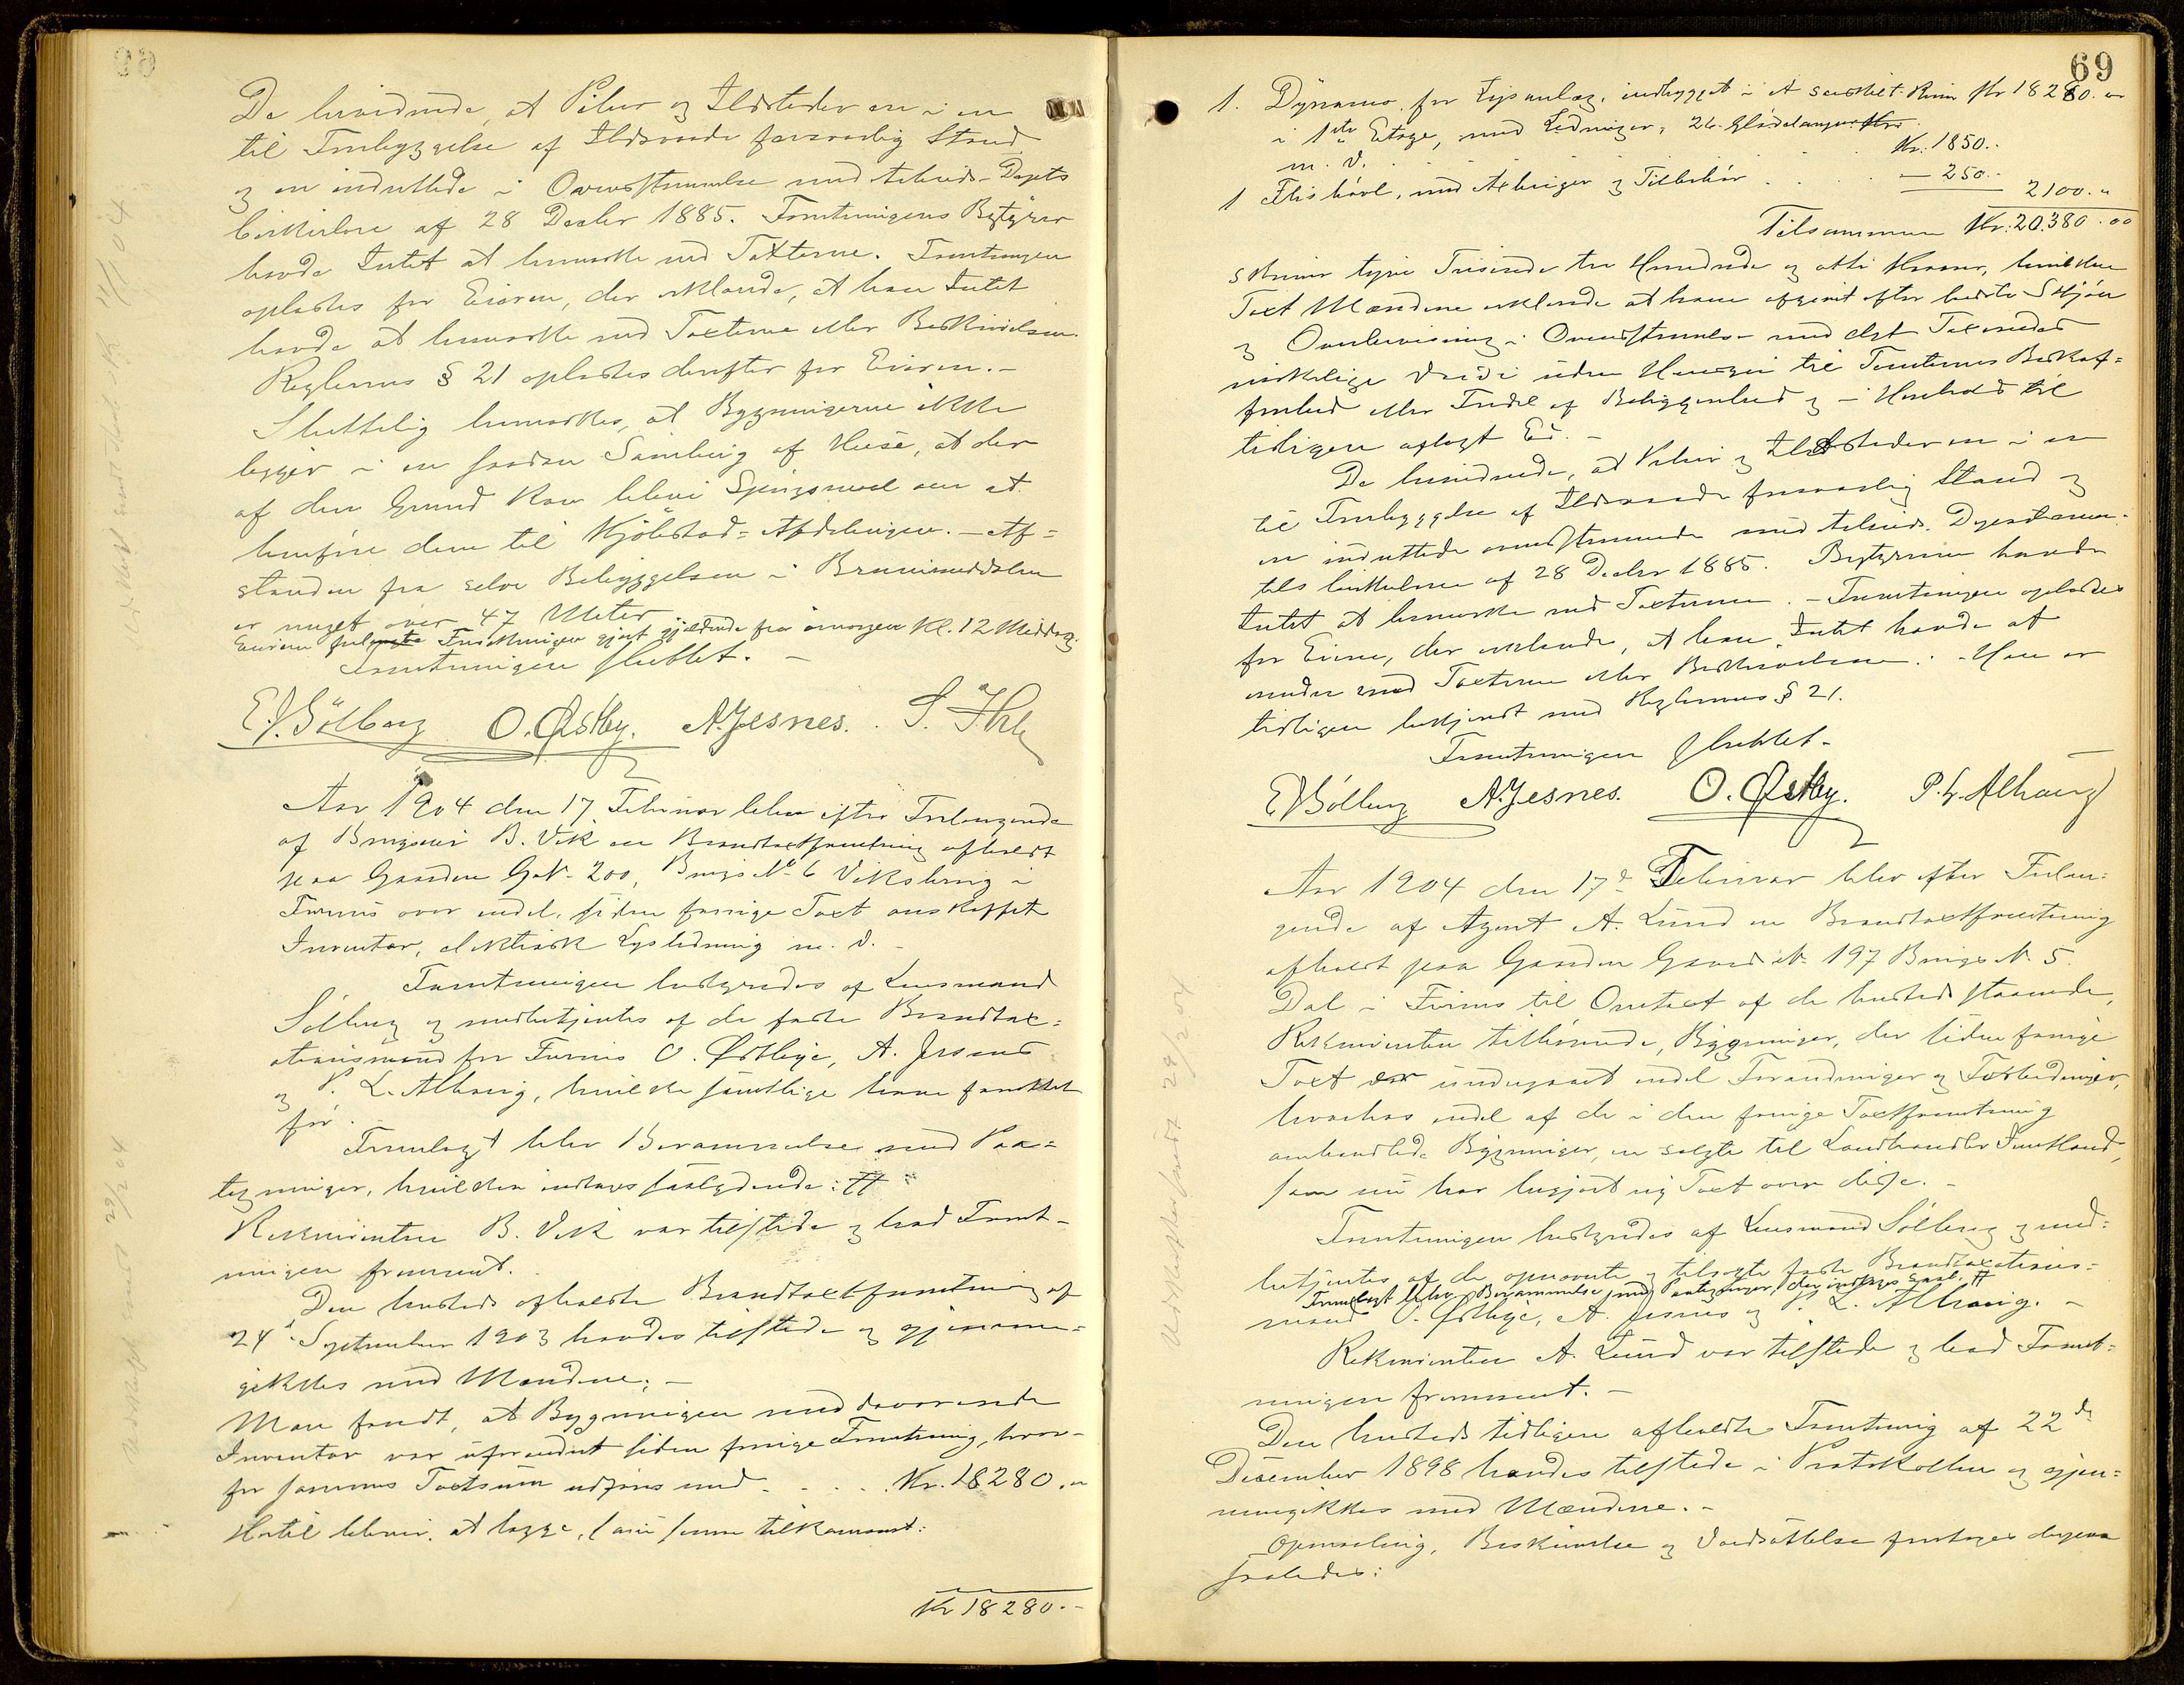 De bevidnede, at Piber og Ildsteder er i en
til Forebyggelse af Ildsvaade forsvarlig Stand
og er indrettede i Overensstemmelse med Arbeids-Depts
Cirkulære af 28 Decbr 1885. Forretningens Bestyrer
havde Intet at bemærke ved Taxterne. Forretningen
oplæstes for Eieren, der erklærede, at have Intet
havde at bemærke ved Taxterne eller Beskrivelsen.
Reglernes § 21 oplæstes derefter for Eieren. –
Sluttelig bemærkes, at Bygningerne ikke
ligger i en saadan Samling af Huse, at der
af den Grund kan blive Spørgsmaal om at
henføre dem til Kjøbstad=Afdelingen. – Af=
standen fra selve Bebyggelsen i Brumunddalen
er noget over 47 Meter
Eieren Forsikringen gjort gjældende fra imorgen Kl. 12 Middag.
Forretningen sluttet. –
E. Sølberg O. Østby. A. Jesnes. S. Ihle
Aar 1904 den 17 Februar blev efter Forlangende
af Brugseier B. Vik en Brandtaxtforretning afholdt
paa Gaarden G.N. 200, Brugs No 6 Viksbrug i
Furnes over endel, siden forrige Taxt anskaffet
Inventar, elektrisk Lysledning m. v. –
Forretningen bestyredes af Lensmand
Sølberg og medbetjentes af de faste Brandtax=
ationsmænd for Furnes O. Østbye, A. Jesnes
og P. L. Alhaug, hvilke samtlige have fungeret
før.
Fremlagt blev Berammelse med Paa=
tegninger, hvilken indtages saalydende: #
Rekvirenten B. Vik var tilstede og bad Forret-
ningen fremmet.
Den hersteds afholdte Brandtaxtforretning af
24de September 1903 havdes tilstede og gjennem=
gikkes med Mændene. –
Man fandt, at Bygningen med daværende
Inventar var uforandret siden forrige Forretning, hvor-
for sammes Taxtsum udføres med . . . . Kr. 18280. "
Hertil bliver at lægge, som senere tilkommet:
Kr 18280. -
69
1. Dynamo for Lysanlæg, indbygget i et særskilt Rum Kr 18280. "
i 1ste Etage, med Ledninger, 26 Glødelamper
m. v. . . . . . Kr. 1850. .
1 Flishøvl, med Axlinger og Tilbehør . . . . – 250. - 2100. "
Tilsammen Kr. 20.380.00
skriver tyve Tusinde tre Hundrede og otti Kroner, hvilken
Taxt Mændene erklærede at have afgivet efter bedste Skjøn
og Overbevisning i Overensstemmelse med det Taxeredes
virkelige Værdi uden Hensyn til Tomternes Beskaf=
fenhed eller Fordel af Beliggenhed og i Henhold til
tidligere aflagt Ed. –
De bevidnede, at Piber og Ildsteder er i en
til Forebyggelse af Ildsvaade forsvarlig Stand og
er indrettede overensstemmende med Arbeids. Departemen-
tets Cirkulære af 28 Decbr 1885. Bestyreren havde
Intet at bemærke ved Taxterne. – Forretningen oplæstes
for Eieren, der erklærede, at have Intet havde at
erindre mod Taxterne eller Beskrivelsen. Han er
tidligere bekjendt med Reglernes § 21.
Forretningen sluttet.-
E. Sølberg A. Jesnes. O. Østby. P. L. Alhaug
Aar 1904 den 17de Februar blev efter Forlan=
gende af Agent A. Lund en Brandtaxtforretning
afholdt paa Gaarden Gaards N. 197 Brugs N. 5
Dal i Furnes til Omtaxt af de hersteds staaende,
Rekvirenten tilhørende, Bygninger, der siden forrige
Taxt er undergaaet endel Forandringer og Forbedringer,
hvorhos endel af de i den forrige Taxtforretning
omhandlede Bygninger, er solgte til Landhandler
som nu har begjært ny Taxt over disse. –
Forretningen bestyredes af Lensmand Sølberg og med=
betjentes af de opnævnte og tilsagte faste Brandtaxations=
Fremlagt blev Berammelse med Paategninger, der indtages saal. #
mænd O. Østbye, A. Jesnes og P. L. Alhaug. –
Rekvirenten A. Lund var tilstede og bad Forret=
ningen fremmet. –
Den hersteds tidligere afholdte Forretning af 22de
December 1898 havdes tilstede i Protokollen og gjen=
nemgikkes med Mændene. –
Opmaaling, Beskrivelse og Værdsættelse foretoges derpaa
saaledes:
29/2 04